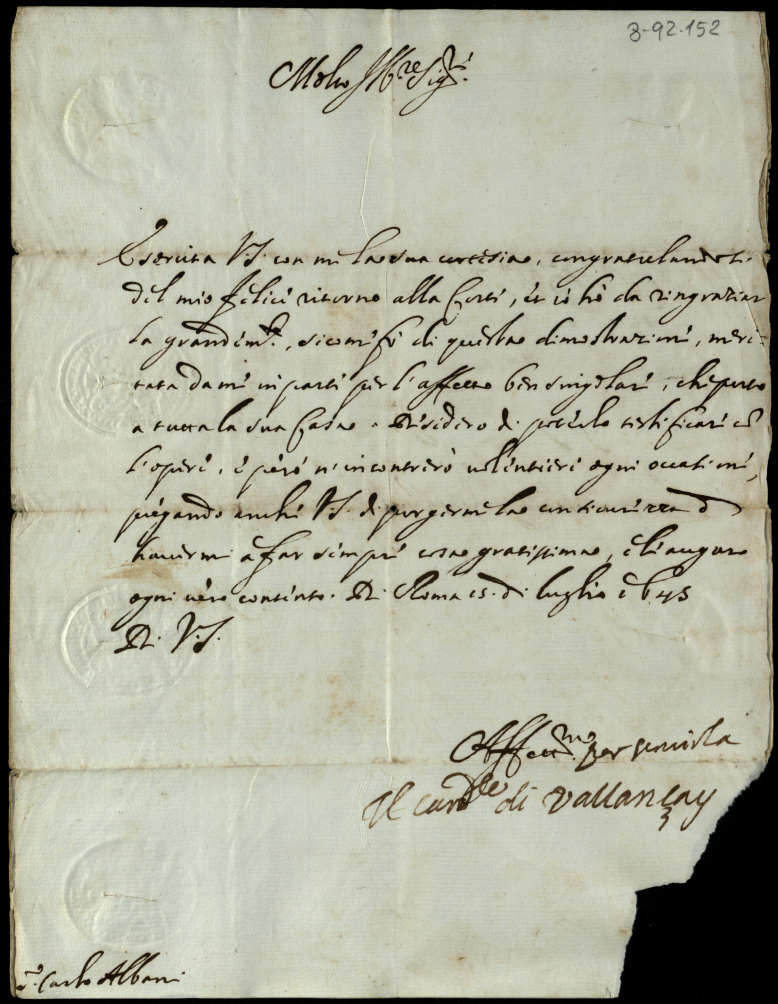 8-92-152
Molto Ill.re Sig.r
Esercita V.S. con me la sua cortesia, congratulandosi
del mio felice ritorno alla Corte, et io hò da ringraziar
la grandem.te, sicome fò di questa dimostrazione, meri
tata da me in parte per l'affetto ben singolare, che porto
a tutta la sua Casa. Desidero di poterlo testificare cõ
l'opere, e però ne incontrerò volentieri ogni occasione,
pregando anche V.S. di porgermela con sicurezza di
havermi à far sempre cosa gratissima, e li auguro
ogni vero contento. Di Roma 15. di luglio 1645
Di V.S.
Affett.mo per servirla
Il car.le di Vallançay
S.r Carlo Albani